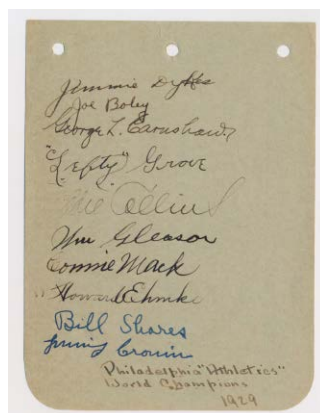 Jimmie Dykes
Joe Boley
George L. Earnshaw
"Lefty" Grove
Eddie Collins
Wm Gleason
Connie Mack
Howard Ehmke
Bill Shores
Philadelphia "Athletics"
World Champions
1929